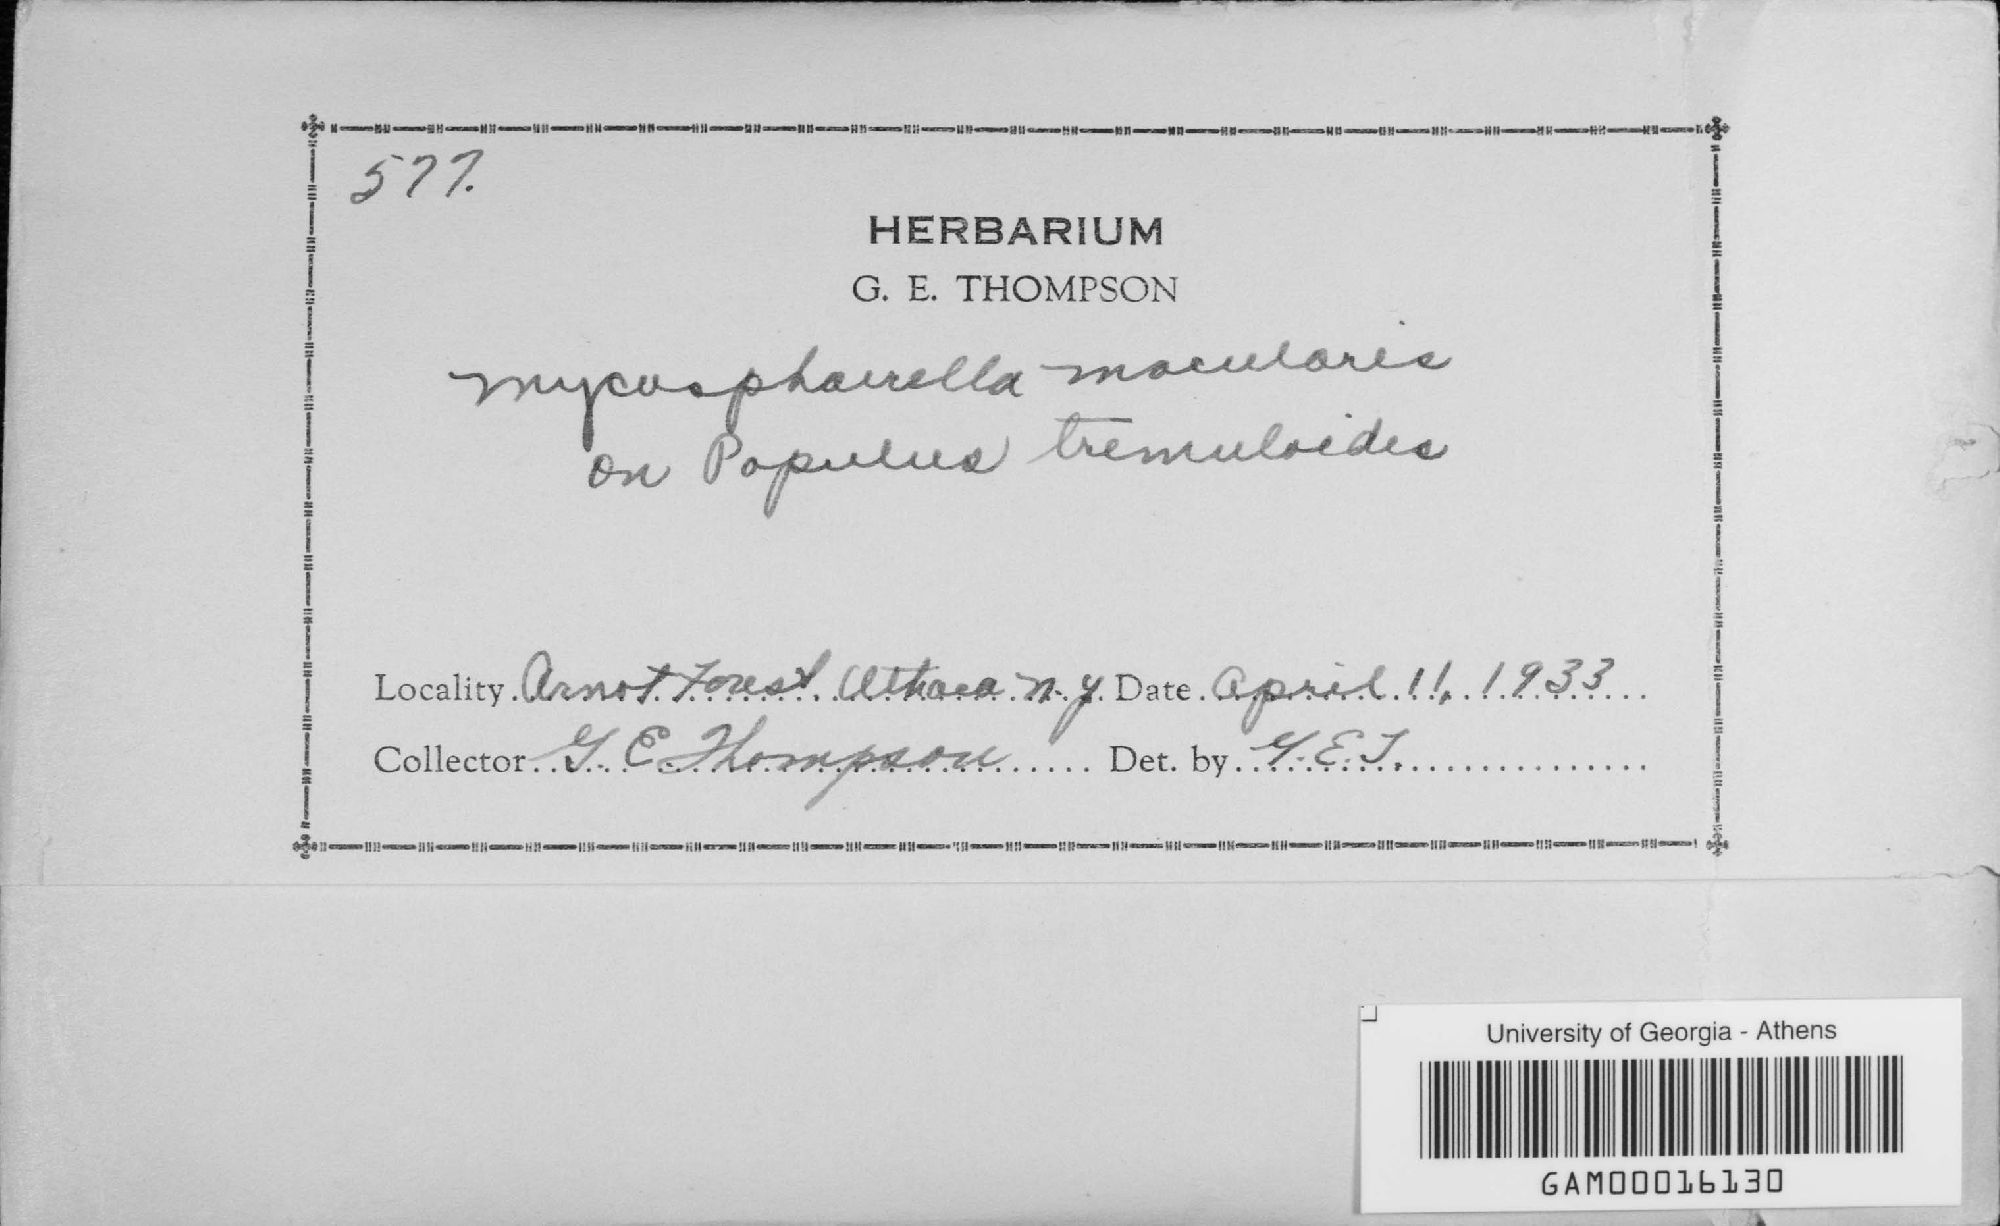 577.
HERBARIUM
G. E. THOMPSON
Mycosphaerella macularis
on Populus tremuloides
Locality. Arnot Forest. Ithaca. N.Y. Date. April 11, 1933
Collector. G. E. Thompson Det. by. G.E.T.
University of Georgia - Athens
GAM00016130